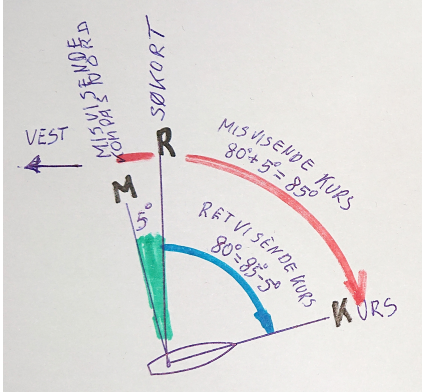 MISVISENDE
KOMPAS NORD
SØKORT
VEST
M
R
5°
MISVISENDE KURS
80°+5°=85°
RETVISENDE KURS
80°=85°-5°
KURS